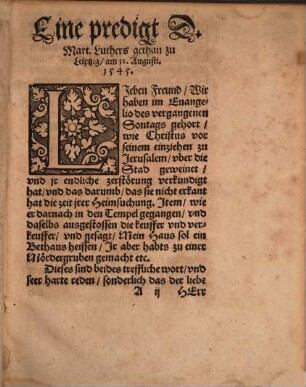 Eine predigt D.
Mart. Luthers gethan zu
Leiptzig/ am 12. Augusti.
1545.
LIeben Freund/ Wir
haben im Euange-
lio des vergangenen
Sontags gehort/
wie Christus vor
seinem einziehen zu
Jerusalem/ vber die
Stad geweinet/
vnd jr endliche zerstörung verkundigt
hat/ vnd das darumb/ das sie nicht erkant
hat die zeit jrer Heimsuchung. Item/ wie
er darnach in den Tempel gegangen/ vnd
daselbs ausgestossen die keuffer vnd ver-
keuffer/ vnd gesagt/ Mein Haus sol ein
Bethaus heissen/ Jr aber habts zu einer
Mördergruben gemacht etc.
Dieses sind beides treffliche wort/ vnd
seer harte reden/ sonderlich das der liebe
A ij HErr